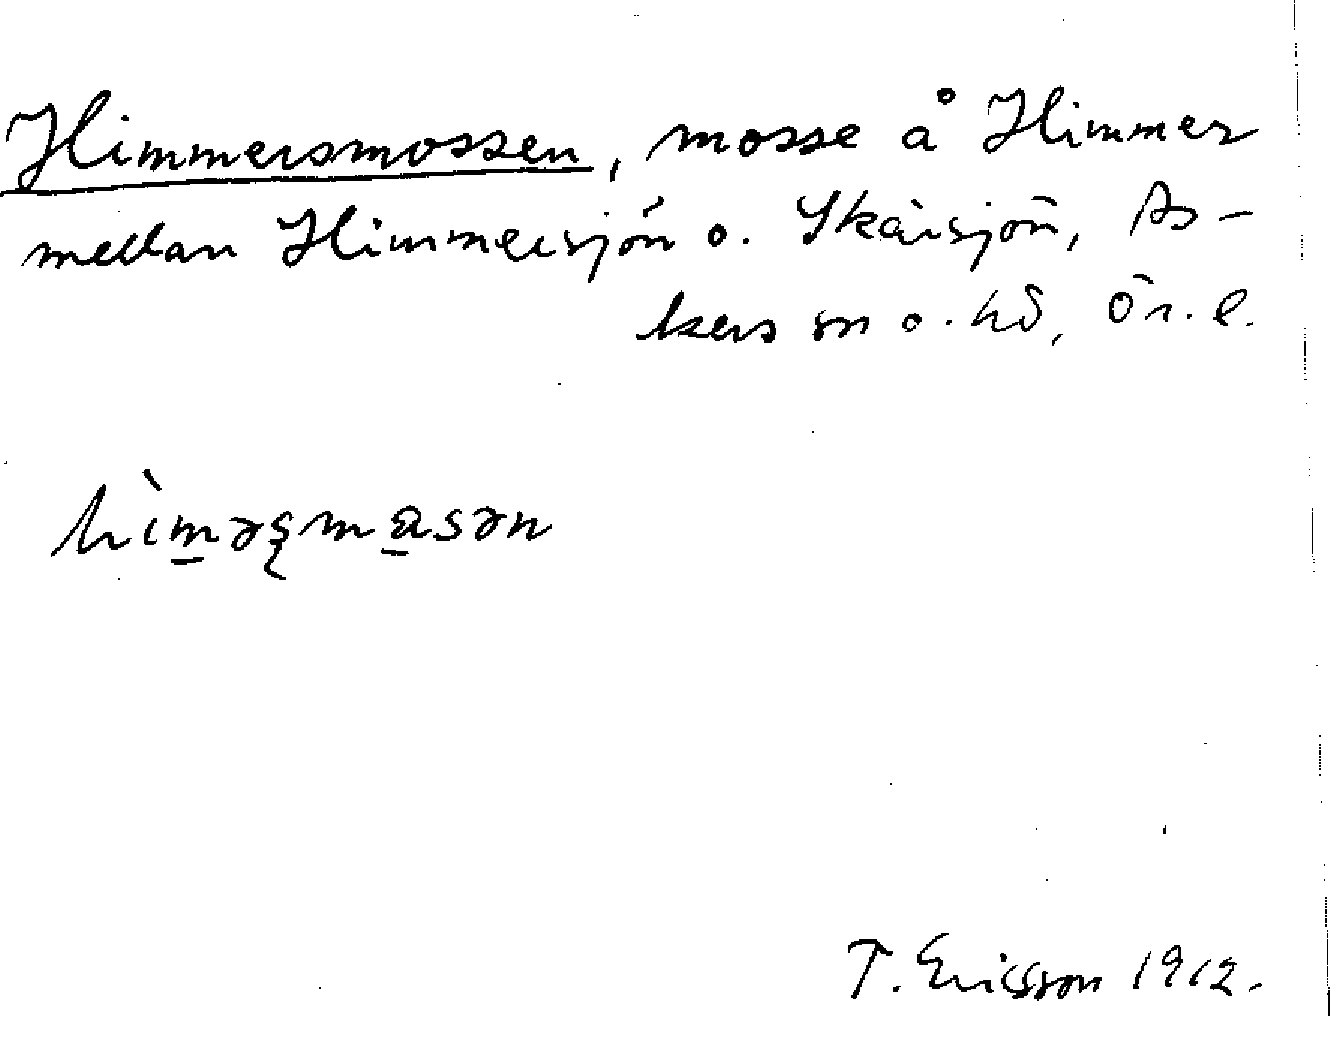 Himmersmossen, mosse å Himmer
mellan Himmersjön o. Skärsjön, As-
kers sn o. hd, Ör. l.
hìm̠əʂma̠sən
T. Ericsson 1912.